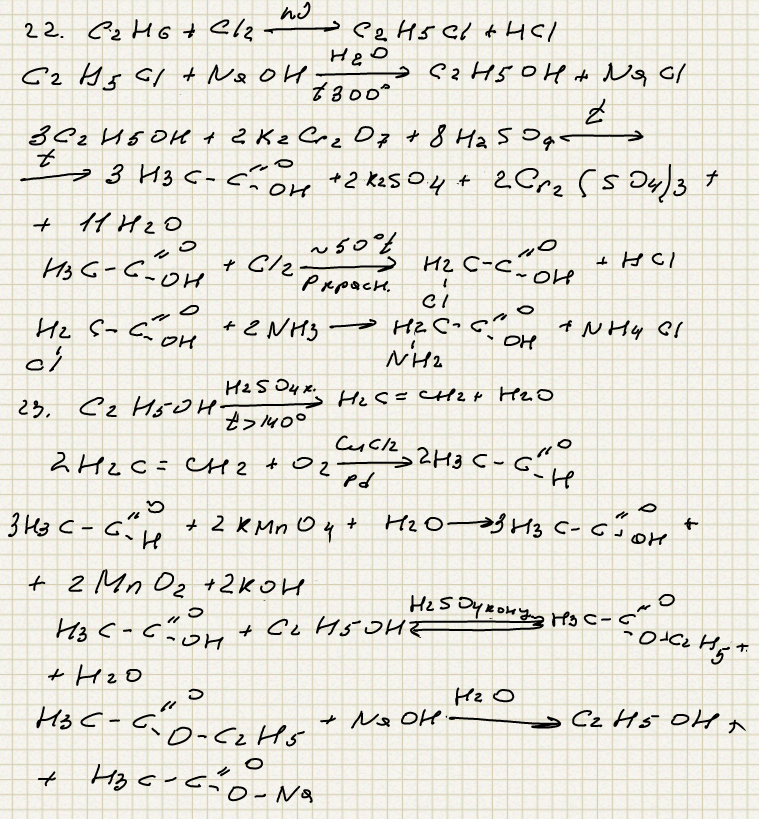 22. C2H6 + Cl2 —hν→ C2H5Cl + HCl
C2H5Cl + NaOH —H2O, t 300°→ C2H5OH + NaCl
3C2H5OH + 2K2Cr2O7 + 8H2SO4 —t→
—t→ 3 H3C-C(=O)-OH + 2K2SO4 + 2Cr2(SO4)3 +
+ 11H2O
H3C-C(=O)-OH + Cl2 —~50°t, P красн.→ H2C(Cl)-C(=O)-OH + HCl
H2C(Cl)-C(=O)-OH + 2NH3 → H2C(NH2)-C(=O)-OH + NH4Cl
23. C2H5OH —H2SO4 к., t>140°→ H2C=CH2 + H2O
2H2C=CH2 + O2 —CuCl2, Pd→ 2H3C-C(=O)-H
3H3C-C(=O)-H + 2KMnO4 + H2O → 3H3C-C(=O)-OH +
+ 2MnO2 + 2KOH
H3C-C(=O)-OH + C2H5OH ⇌ H2SO4 конц H3C-C(=O)-O-C2H5 +
+ H2O
H3C-C(=O)-O-C2H5 + NaOH —H2O→ C2H5OH +
+ H3C-C(=O)-O-Na